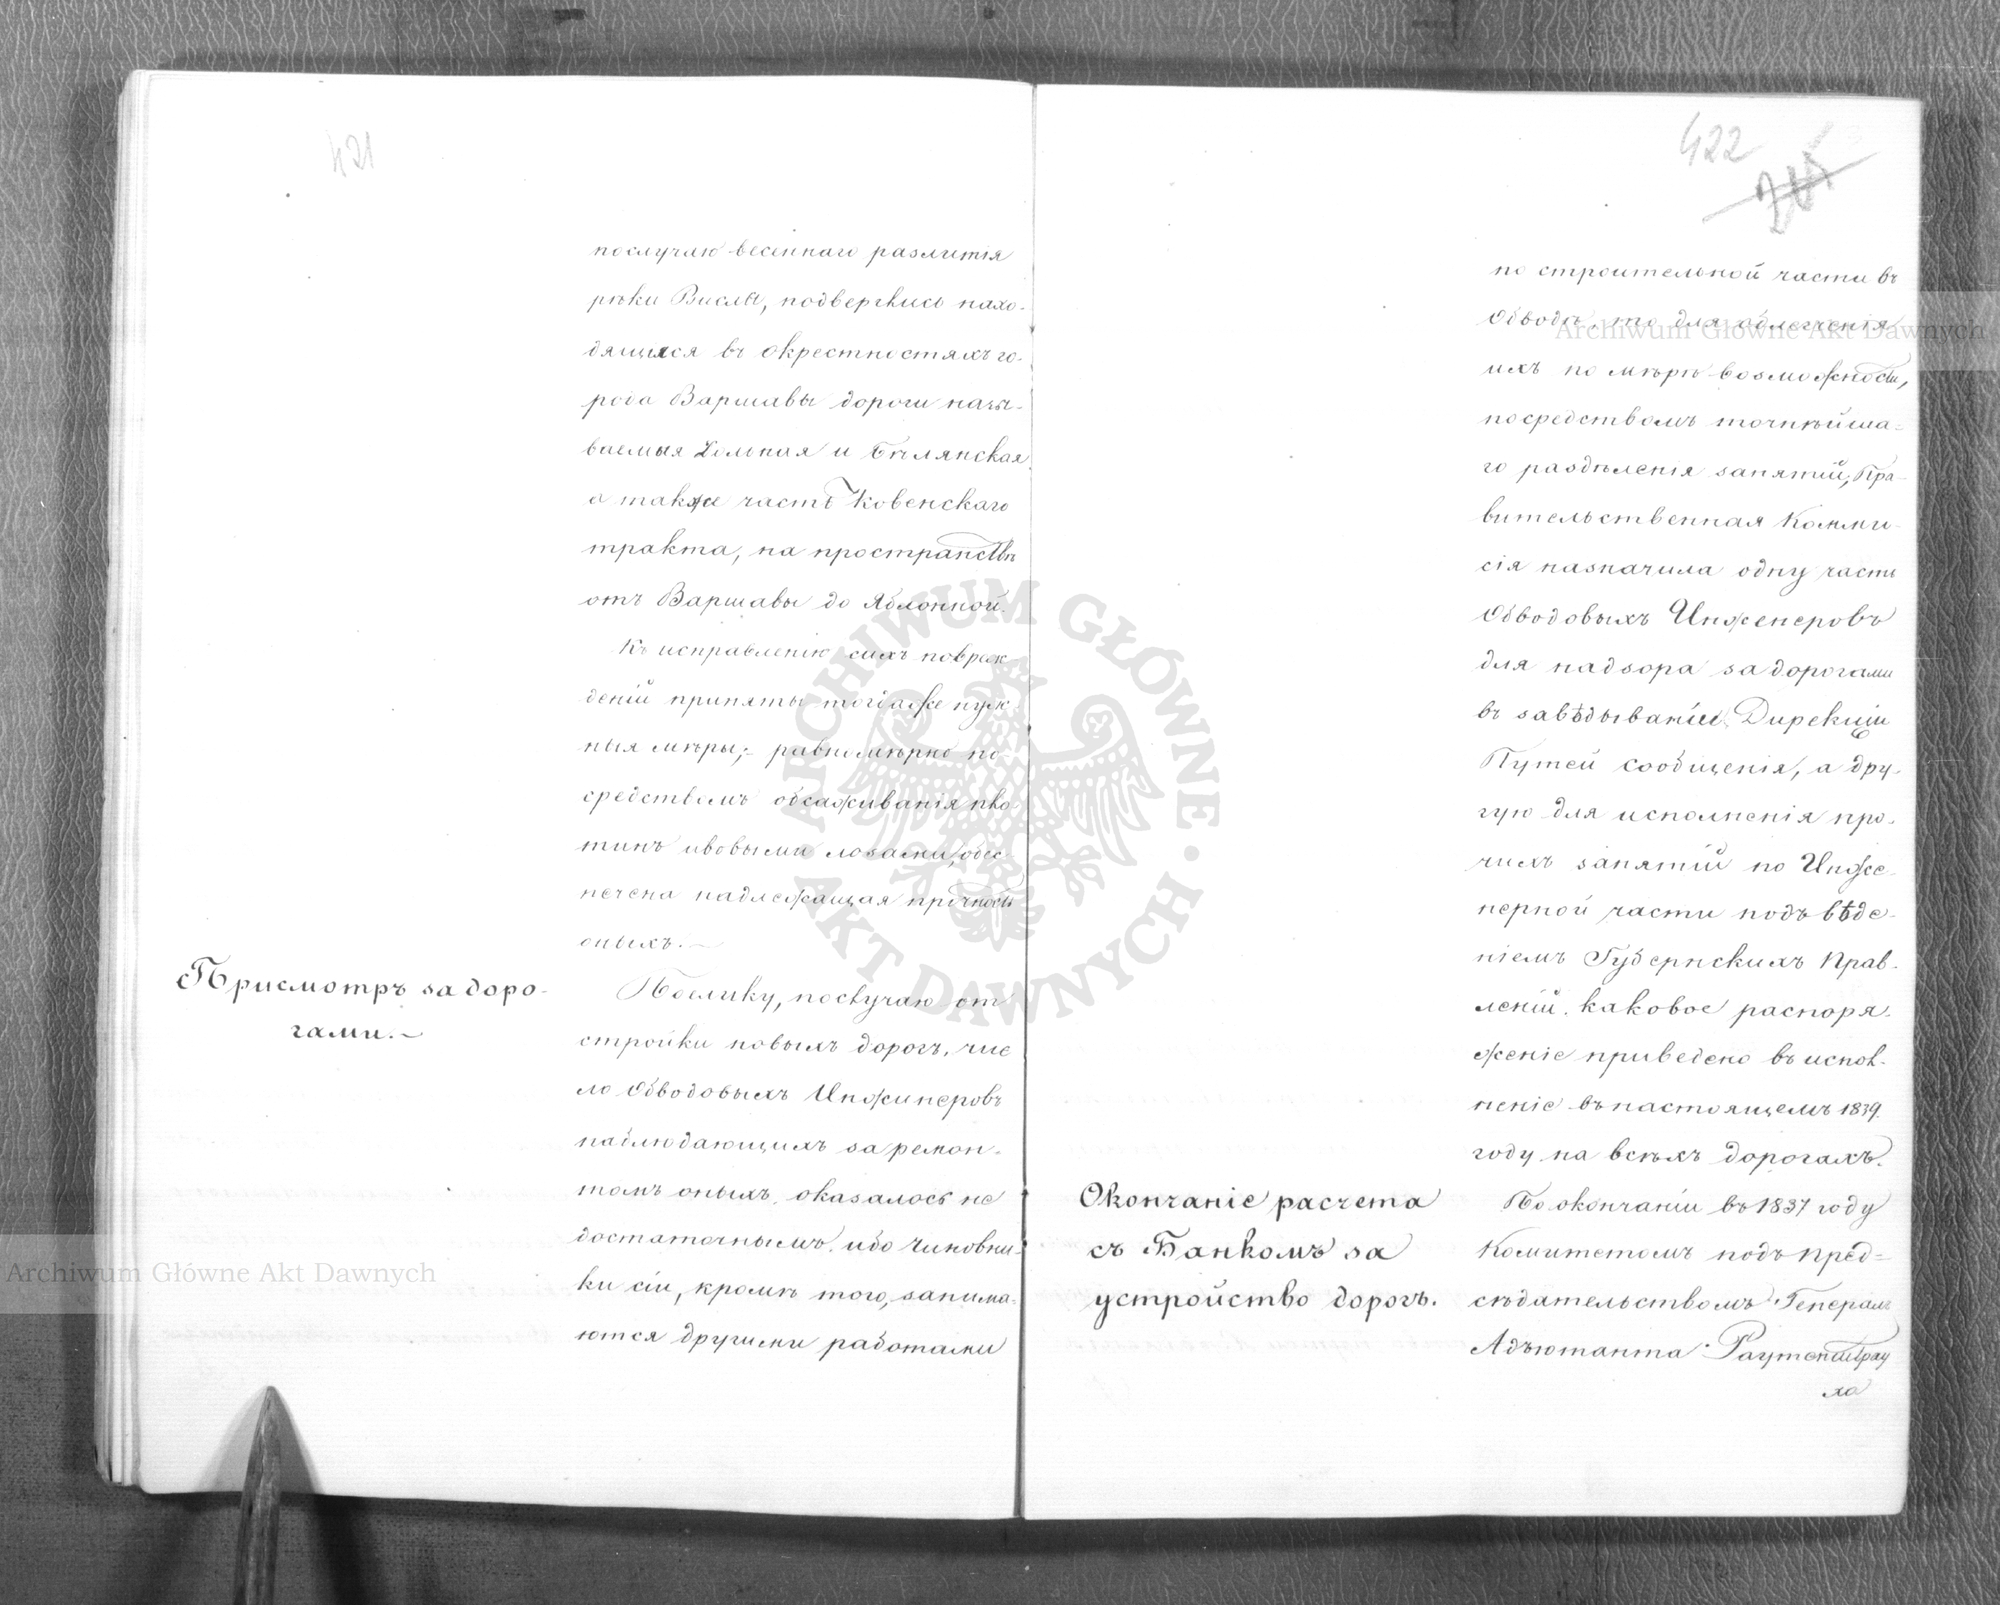 421
послучаю весеннаго разлитія
рѣки Вислы, подверглись нахо-
дящіяся въ окрестностяхъ го-
рода Варшавы дороги назы-
ваемыя и Бѣлянская
а также часть Ковенскаго
тракта, на пространствѣ
отъ Варшавы до Яблонной.
Къ исправленію сихъ повреж
деній приняты тогдаже нуж
ныя мѣры; равномѣрно по-
средствомъ обсаживанія пло
тинъ ивовыми лозами, обез-
печена надлежащая прочность
оныхъ.
Присмотръ за доро-
гами.
Поелику, послучаю от
стройки новыхъ дорогъ, чис
ло Обводовыхъ Инжинеровъ
наблюдающихъ за ремон-
томъ оныхъ, оказалось не
достаточнымъ, ибо чиновни-
ки сіи, кромѣ того, занима-
ются другими работами
422
по строительной части въ
Обводѣ, то для облегченія
ихъ по мѣрѣ возможности,
посредствомъ точнѣйша-
го раздѣленія занятій, Пра-
вительственная Комми-
сія назначила одну часть
Обводовыхъ Инженеровъ
для надзора за дорогами
въ завѣдываніи Дирекціи
Путей сообщенія, а дру-
гую для исполненія про-
чихъ занятій по Инже-
нерной части подъ вѣде-
ніемъ Губернскихъ Прав-
леній, каковое распоря-
женіе приведено въ испол-
неніе въ настоящемъ 1839
году на всѣхъ дорогахъ.
Окончаніе расчета
съ Банкомъ за
устройство дорогъ.
По окончаніи въ 1837 году
Комитетомъ подъ пред-
сѣдательствомъ Генералъ
Адъютанта Раутенштрау
ха
Archiwum Główne Akt Dawnych
Archiwum Główne Akt Dawnych
ARCHIWUM GŁÓWNE AKT DAWNYCH